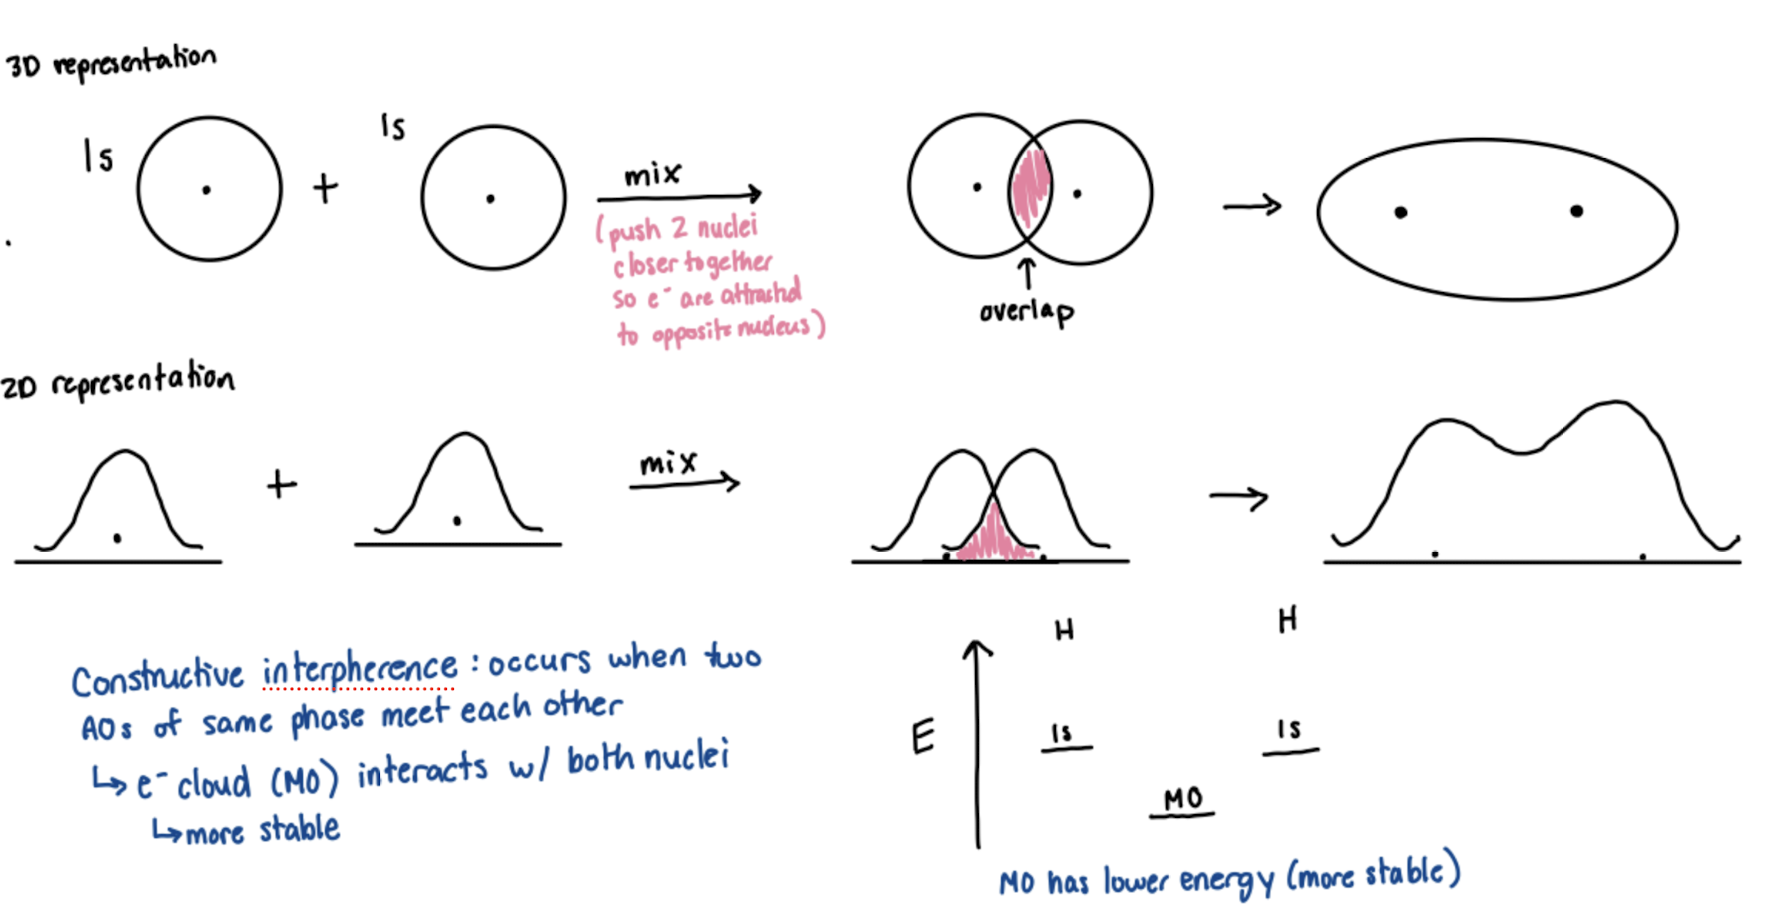 3D representation
1s
+
1s
mix
(push 2 nuclei
closer together
so e⁻ are attrachd
to opposite nucleus)
overlap
2D representation
+
mix
Constructive interpherence : occurs when two
AOs of same phase meet each other
↳ e⁻ cloud (MO) interacts w/ both nuclei
↳ more stable
H
H
E
1s
1s
MO
MO has lower energy (more stable)